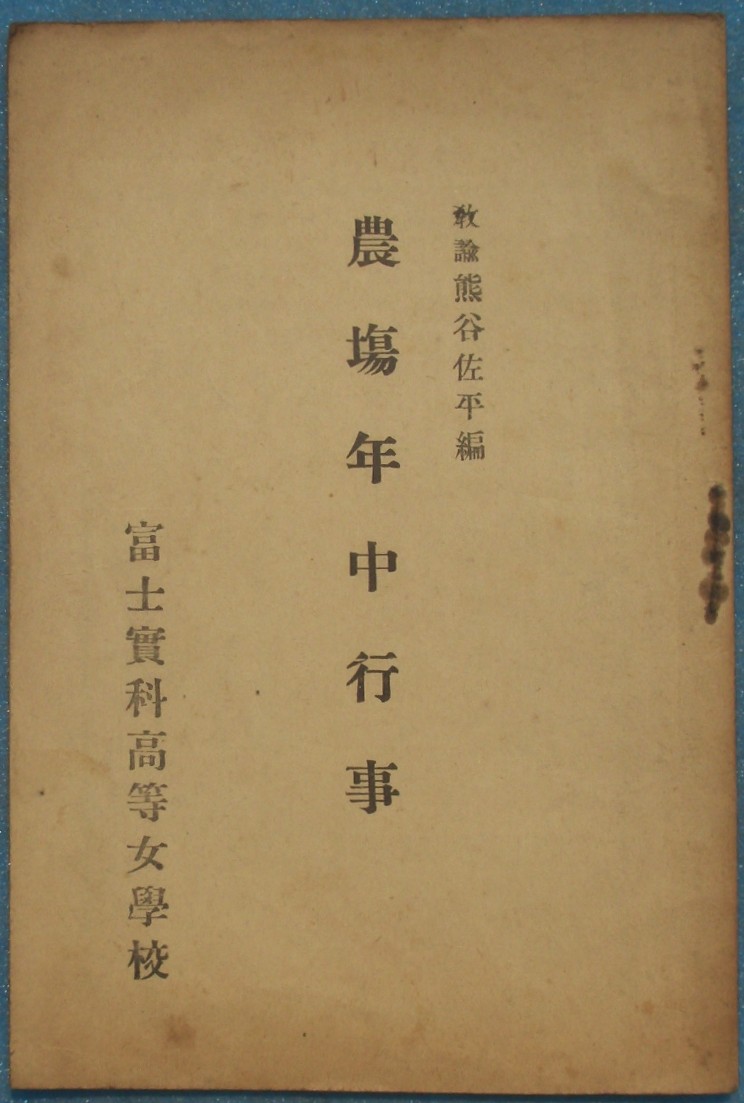 教諭熊谷佐平編
農塲年中行事
富士實科高等女學校